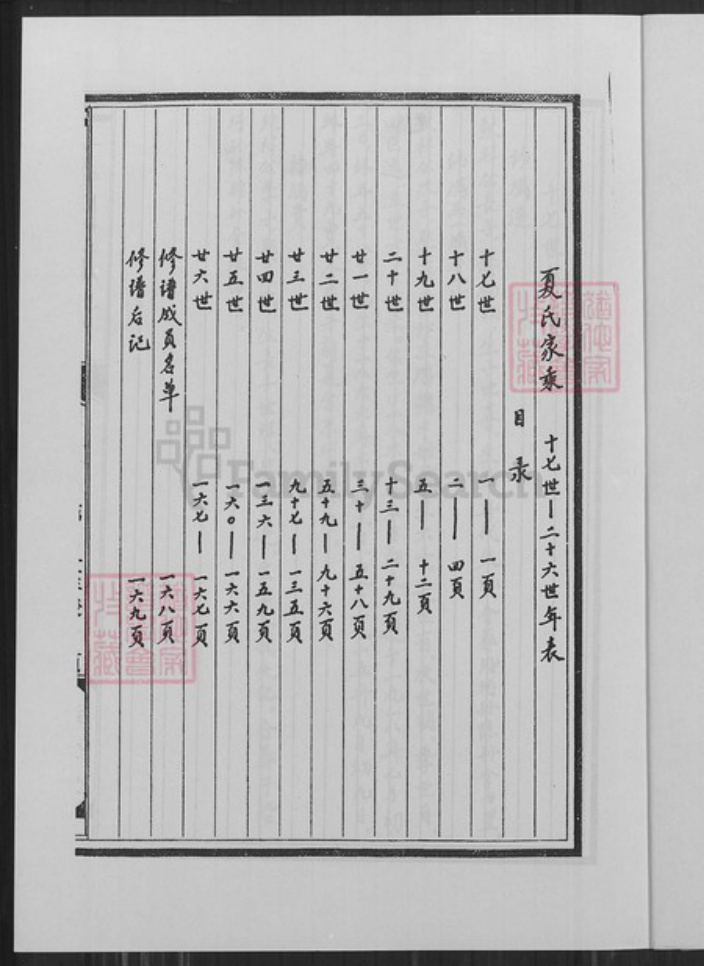 夏氏家乘 十七世—二十六世年表
目录
十七世 一——一頁
十八世 二——四頁
十九世 五——十二頁
二十世 十三——二十九頁
廿一世 三十——五十八頁
廿二世 五十九—九十六頁
廿三世 九十七—一三五頁
廿四世 一三六—一五九頁
廿五世 一六〇—一六六頁
廿六世 一六七—一六七頁
修谱成员名单 一六八頁
修谱后记 一六九頁
FamilySearch